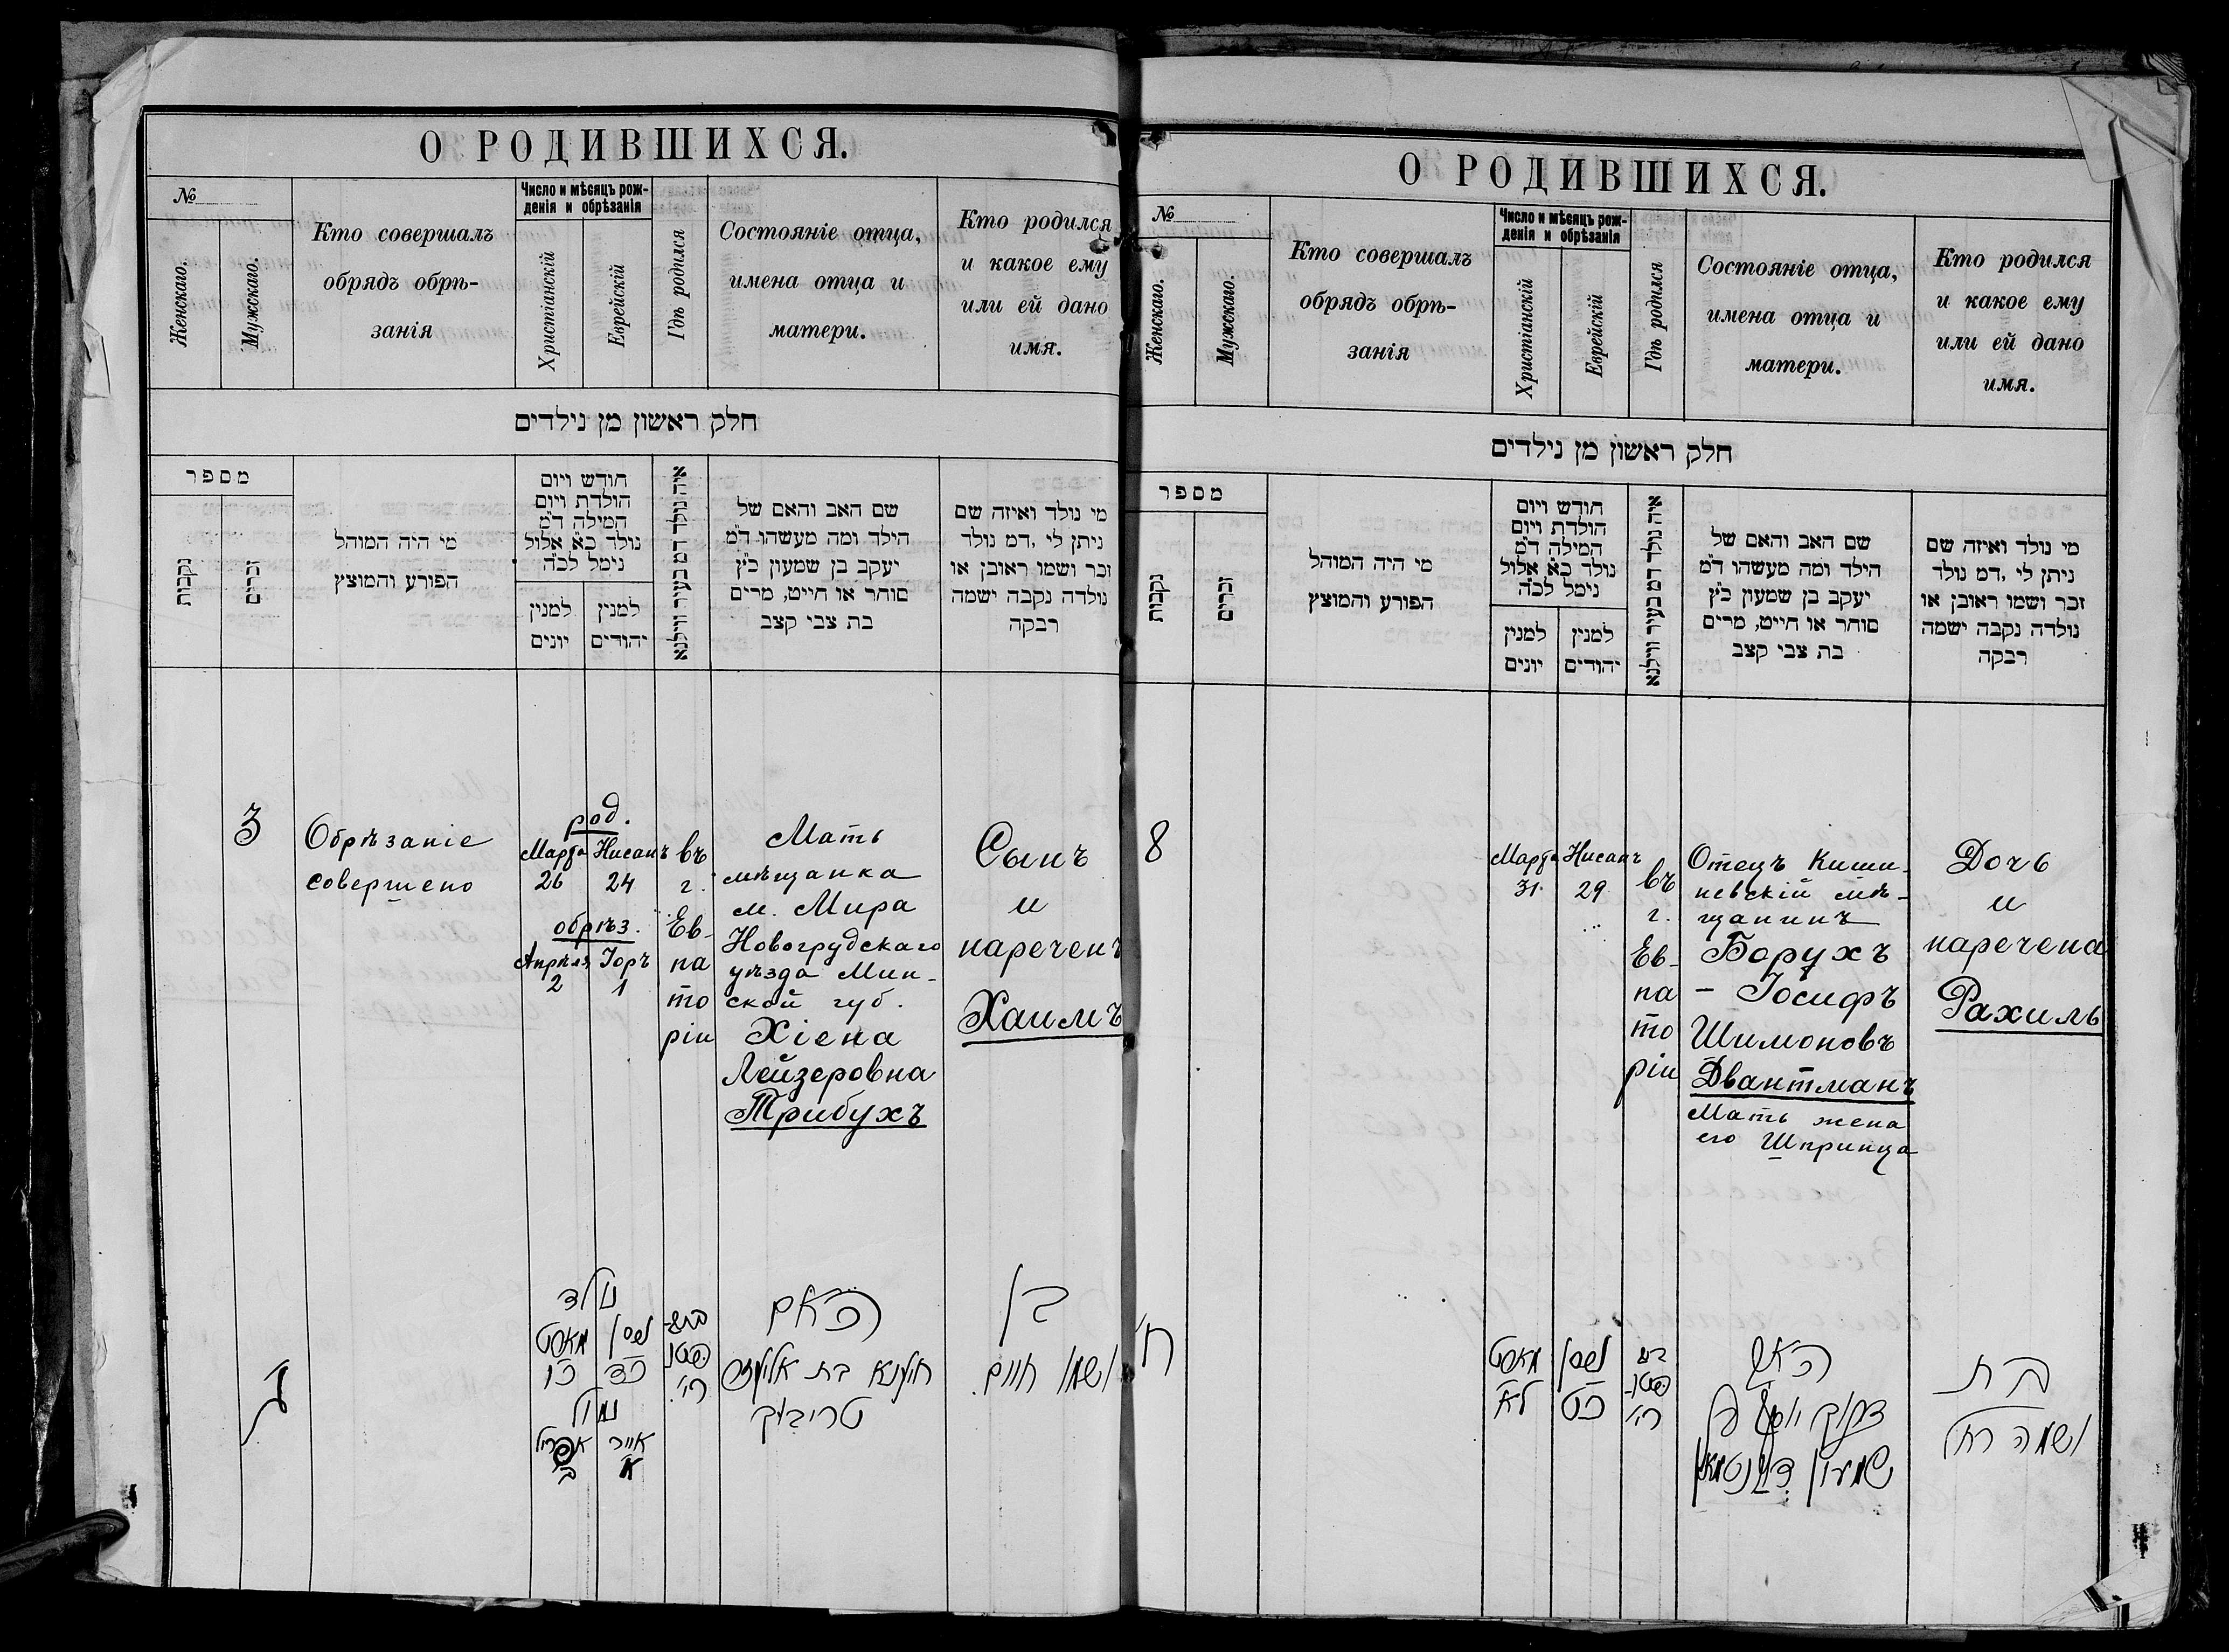 О РОДИВШИХСЯ.
№
Женскаго.
Мужскаго.
Кто совершалъ
обрядъ обрѣ-
занія
Число и мѣсяцъ рож-
денія и обрѣзанія
Христіанскій
Еврейскій
Гдѣ родился
Состояніе отца,
имена отца и
матери.
Кто родился
и какое ему
или ей дано
имя.
חלק ראשון מן נילדים
מספר
נקבות
זכרים
מי היה המוהל
הפורע והמוצץ
חודש ויום
הולדת ויום
המילה ד״מ
נולד כ״א אלול
נימל לכ״ה
למנין
יונים
למנין
יהודים
איה נולד דמ בעיר ווילנא
שם האב והאם של
הילד ומה מעשהו ד״מ
יעקב בן שמעון כ״ץ
סוחר או חייט, מרים
בת צבי קצב
מי נולד ואיזה שם
ניתן לי, דמ נולד
זכר ושמו ראובן או
נולדה נקבה ישמה
רבקה
3
Обрѣзаніе
совершено
род.
Марта
26
Нисанъ
24
обрѣз.
Апрѣля
2
Іоръ
1
въ
г.
Ев-
па
то
ріи
Мать
мѣщанка
м. Мира
Новогрудскаго
уѣзда Мин-
ской губ.
Хіена
Лейзеровна
Трибухъ
Сынъ
и
нареченъ
Хаимъ
ג
נולד
מארט
כו
ניסן
כד
נמול
אפריל
ב
אייר
א
האם
חיענא בת אליעזר
טריבוך
בן
ושמו חיים.
О РОДИВШИХСЯ.
№
Женскаго.
Мужскаго.
Кто совершалъ
обрядъ обрѣ-
занія
Число и мѣсяцъ рож-
денія и обрѣзанія
Христіанскій
Еврейскій
Гдѣ родился
Состояніе отца,
имена отца и
матери.
Кто родился
и какое ему
или ей дано
имя.
חלק ראשון מן נילדים
מספר
נקבות
זכרים
מי היה המוהל
הפורע והמוצץ
חודש ויום
הולדת ויום
המילה ד״מ
נולד כ״א אלול
נימל לכ״ה
למנין
יונים
למנין
יהודים
איה נולד דמ בעיר ווילנא
שם האב והאם של
הילד ומה מעשהו ד״מ
יעקב בן שמעון כ״ץ
סוחר או חייט, מרים
בת צבי קצב
מי נולד ואיזה שם
ניתן לי, דמ נולד
זכר ושמו ראובן או
נולדה נקבה ישמה
רבקה
8
Марта
31
Нисанъ
29
въ
г.
Ев-
па
то
ріи
Отецъ Киши-
невскій мѣ-
щанинъ
Борухъ
- Іосифъ
Шимоновъ
Двантманъ
Мать жена
его Шпринца
Дочь
и
наречена
Рахиль
ח
מארט
לא
ניסן
כט
האב
ברוך יוסף בן
שמעון דוואנטמאן
בת
ושמה רחל